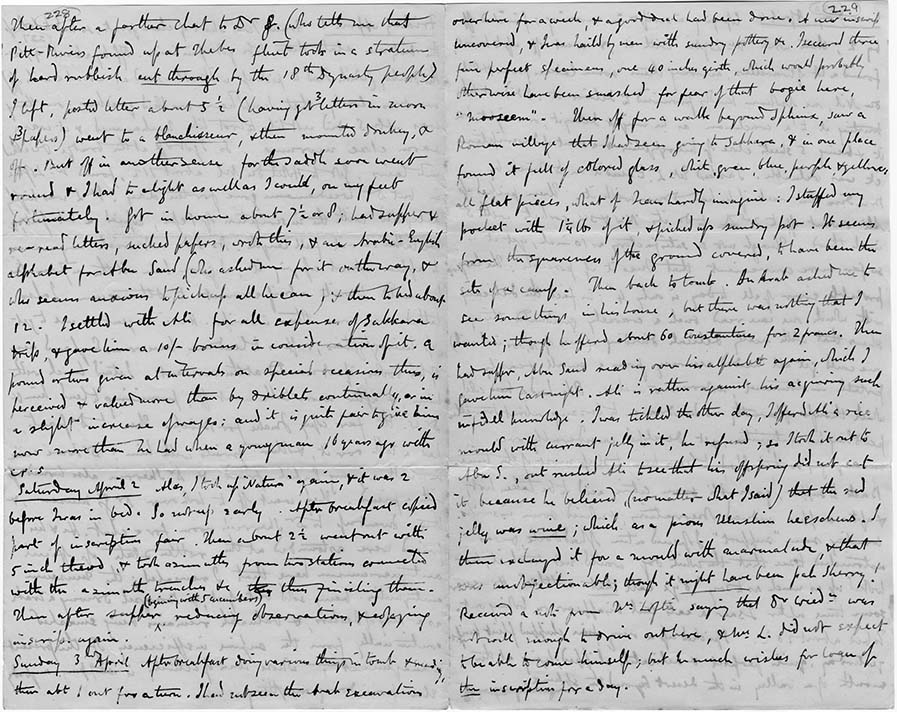 228
Then after a further chat to Dr G. (who tells me that
Pitt-Rivers found up at Thebes flint tools in a stratum
of hard rubbish cut through by the 18th Dynasty people)
I left, posted letter about 5½ (having got 3 letters in room
& 3 papers) went to a blanchisseur, & then mounted donkey, &
off. But off in another sense for the saddle soon went
round & I had to alight as well as I could, on my feet
fortunately. Got in home about 7½ or 8; had supper &
read letters, sucked papers, wrote this, & an Arabic-English
alphabet for Abu Saud, (who asked me for it on the way, &
who seems anxious to pick up all he can); & then to bed about
12. I settled with Ali for all expenses of Sakkara
trip, & gave him a 10/- bonus in consideration of it. A
pound or two given at intervals on special occasions thus, is
perceived & valued more than by driblets continually, or in
a slight increase of wages: and it is quite fair to give him
now more than he had when a young man 16 years ago with
C.P.S.
Saturday April 2 Alas, I took up 'Nature' again, & it was 2
before I was in bed. So not up early. After breakfast copied
part of inscription fair. Then about 2½ went out with
5 inch theod, & took azimuths from two stations connected
with the azimuth trenches &c thus finishing them.
Then after supper (beginning with 5 cucumbers) reducing observations, & copying
inscrip: again.
Sunday 3 April After breakfast doing various things in tomb &
then abt 1 out for a turn. I had not seen the Arab excavations
229
over here for a week & a good deal had been done. A new inscrip
uncovered, & I was hailed by men with sundry pottery &c. I secured three
fine perfect specimens, one 40 inches girth, which would probably
otherwise have been smashed for fear of that bogie here,
"Mooseem". Then off for a walk beyond Sphinx, saw a
Roman village that I had seen going to Sakkara, & in one place
found it full of colored glass, white, green, blue, purple & yellow,
all flat pieces, what of I can hardly imagine: I stuffed my
pocket with 1¼ lbs of it, & picked up sundry pot. It seems
from the squareness of the ground covered, to have been the
site of a camp. Then back to tomb. An Arab asked me to
see some things in his house, but there was nothing that I
wanted; though he offered about 60 Constantines for 2 francs. Then
had supper, Abu Saud reading over his alphabet again, which I
gave him last night. Ali is rather against his acquiring such
infidel knowledge. I was tickled the other day, I offered Ali a rice
mould with currant jelly in it, he refused; so I took it out to
Abu S., out rushed Ali to see that his offspring did not eat
it because he believed (no matter what I said) that the red
jelly was wine; which as a pious Muslim he eschews. I
then exchanged it for a mould with marmalade, & that
was unobjectionable; though it might have been pale sherry!
Received a note from Mr Loftie saying that Dr was
not well enough to drive out here, & Mr L. did not expect
to be able to come himself; but he much wishes for loan of
the inscription for a day.